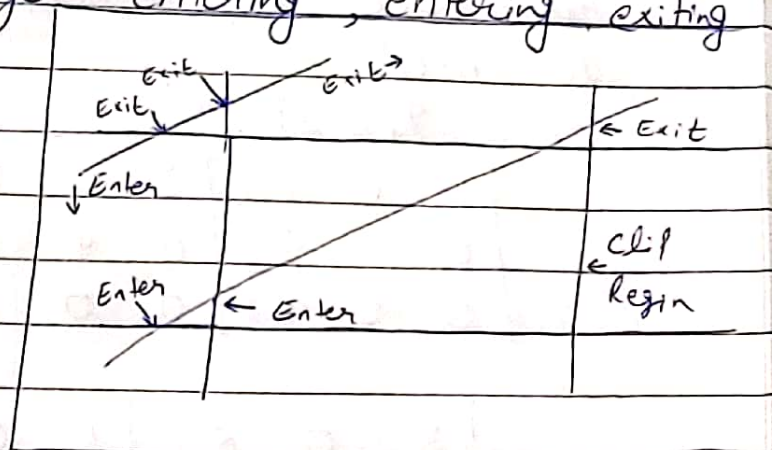 entering, exiting
Exit
Exit →
Exit
← Exit
Enter
Clip
←
Region
Enter
← Enter